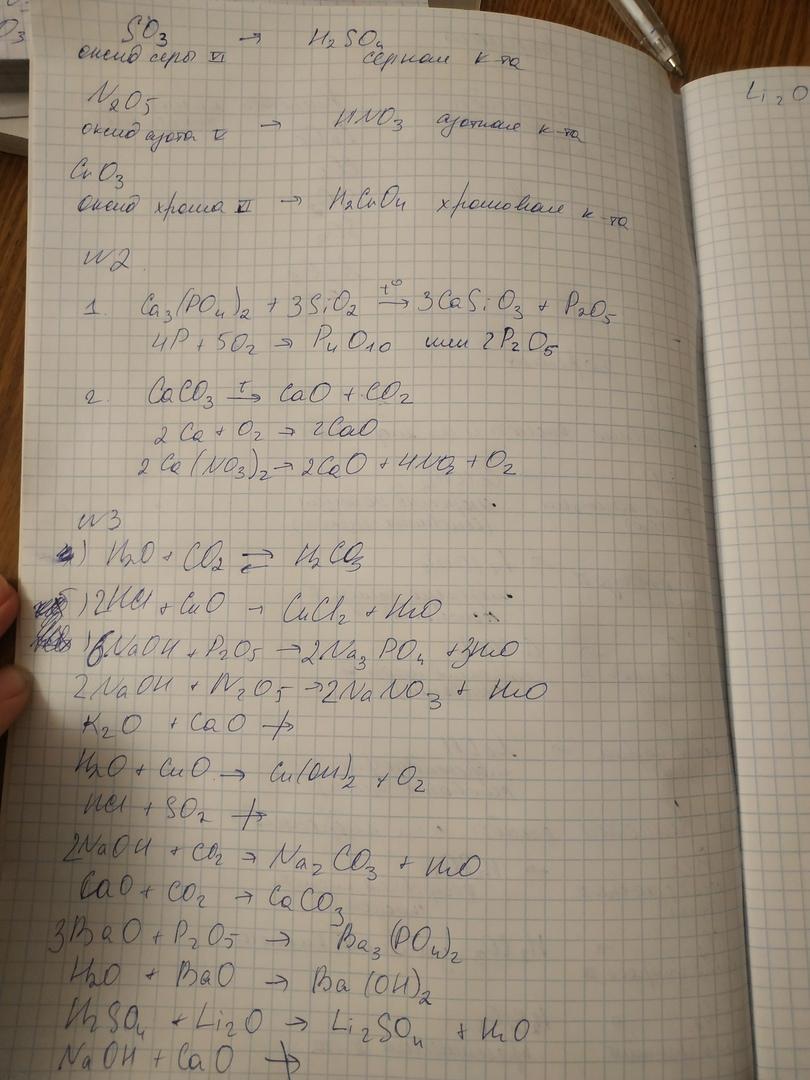 SO₃ → H₂SO₄
оксид серы VI серная к-та
N₂O₅
оксид азота V → HNO₃ азотная к-та
CrO₃
оксид хрома VI → H₂CrO₄ хромовая к-та
Li₂O
N2
1. Ca₃(PO₄)₂ + 3SiO₂ t° → 3CaSiO₃ + P₂O₅
4P + 5O₂ → P₄O₁₀ или 2P₂O₅
2. CaCO₃ t → CaO + CO₂
2Ca + O₂ → 2CaO
2Ca(NO₃)₂ → 2CaO + 4NO₂ + O₂
N3
а) H₂O + CO₂ ⇄ H₂CO₃
б) 2HCl + CuO → CuCl₂ + H₂O
) 6NaOH + P₂O₅ → 2Na₃PO₄ + 3H₂O
2NaOH + N₂O₅ → 2NaNO₃ + H₂O
K₂O + CaO ↛
H₂O + CuO → Cu(OH)₂ + O₂
HCl + SO₂ ↛
2NaOH + CO₂ → Na₂CO₃ + H₂O
CaO + CO₂ → CaCO₃
3BaO + P₂O₅ → Ba₃(PO₄)₂
H₂O + BaO → Ba(OH)₂
H₂SO₄ + Li₂O → Li₂SO₄ + H₂O
NaOH + CaO ↛